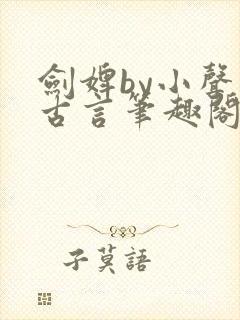 劍婢by小聲
古言筆趣閣
子莫語